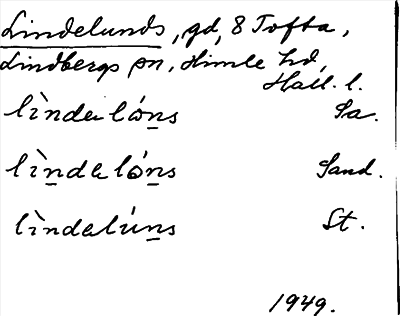 Lindelunds, gd, 8 Tofta,
Lindbergs sn, Himle hd,
Hall. l.
lìndəlón̲s Sa.
lìn̲dəlón̲s Sand.
lìndəlún̲s St.
1949.